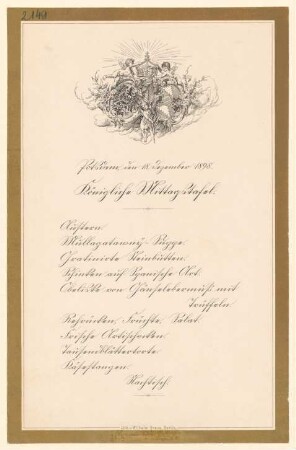 2149
Potsdam, den 18. Dezember 1898.
Königliche Mittagstafel.
Austern.
Mullagatawny-Suppe.
Gratinirte Steinbutten.
Schinken auf Spanische Art.
von Gänselebermuß mit
Trüffeln.
Rehrücken, Früchte, Salat.
Frische Artischocken.
Tausendblättertorte.
Käsestangen.
Nachtisch.